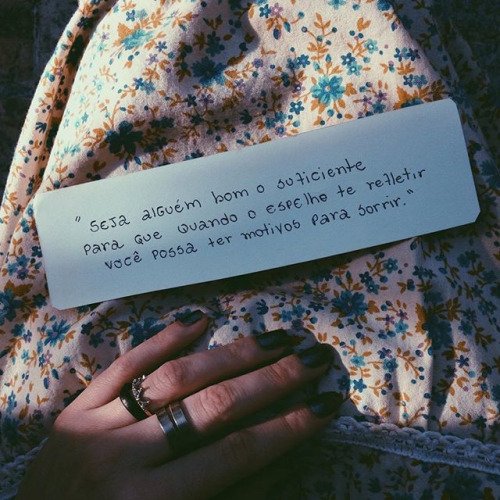 " Seja alguém bom o suficiente
para que quando o espelho te refletir
você possa ter motivos para sorrir."